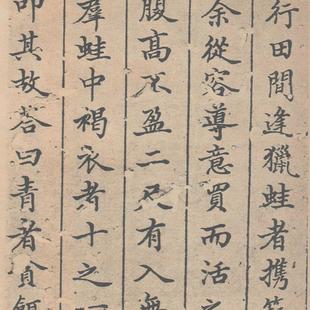 行田間逢獵蛙者携
余從容導意買而活
腹高不盈二尺有入無
羣蛙中褐衣者十之
叩其故荅曰青者貪餌